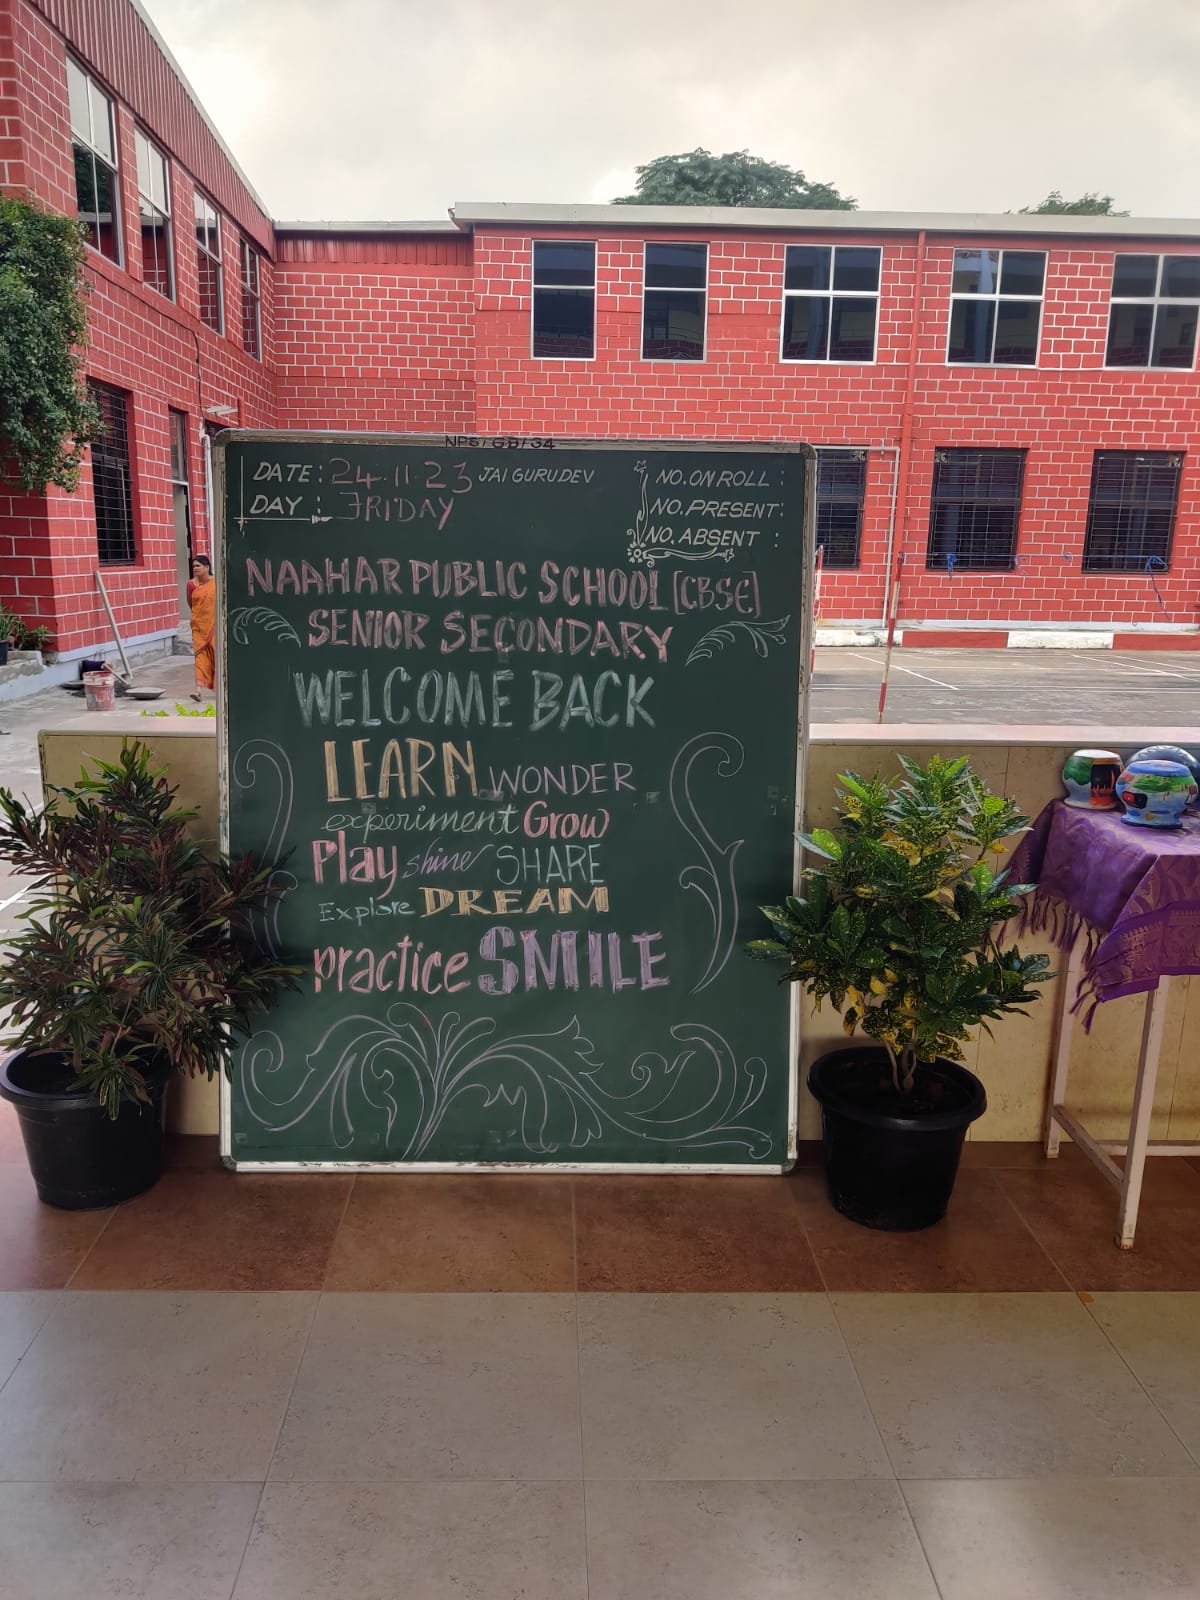 NPS/GB/34
DATE: 24.11.23 JAI GURUDEV
DAY : FRIDAY
NO. ON ROLL :
NO. PRESENT:
NO. ABSENT :
NAAHAR PUBLIC SCHOOL [CBSE]
SENIOR SECONDARY
WELCOME BACK
LEARN WONDER
experiment Grow
Play shine SHARE
Explore DREAM
practice SMILE